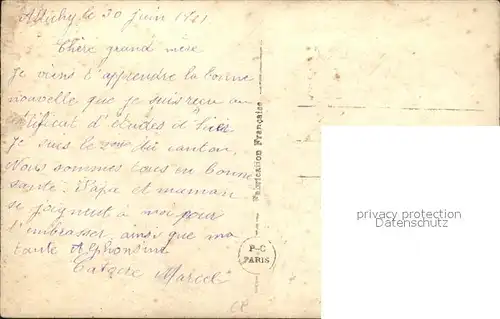 Attichy le 30 juin 1921
Chère grand mère
Je viens d'apprendre la bonne
nouvelle que je suis reçu au
certificat d'études et
Je suis le du canton.
Nous sommes tous en bonne
santé. Papa et maman
se joignent à moi pour
t'embrasser, ainsi que ma
tante Alphonsine
Marcel
Fabrication Française
P-C
PARIS
privacy protection
Datenschutz